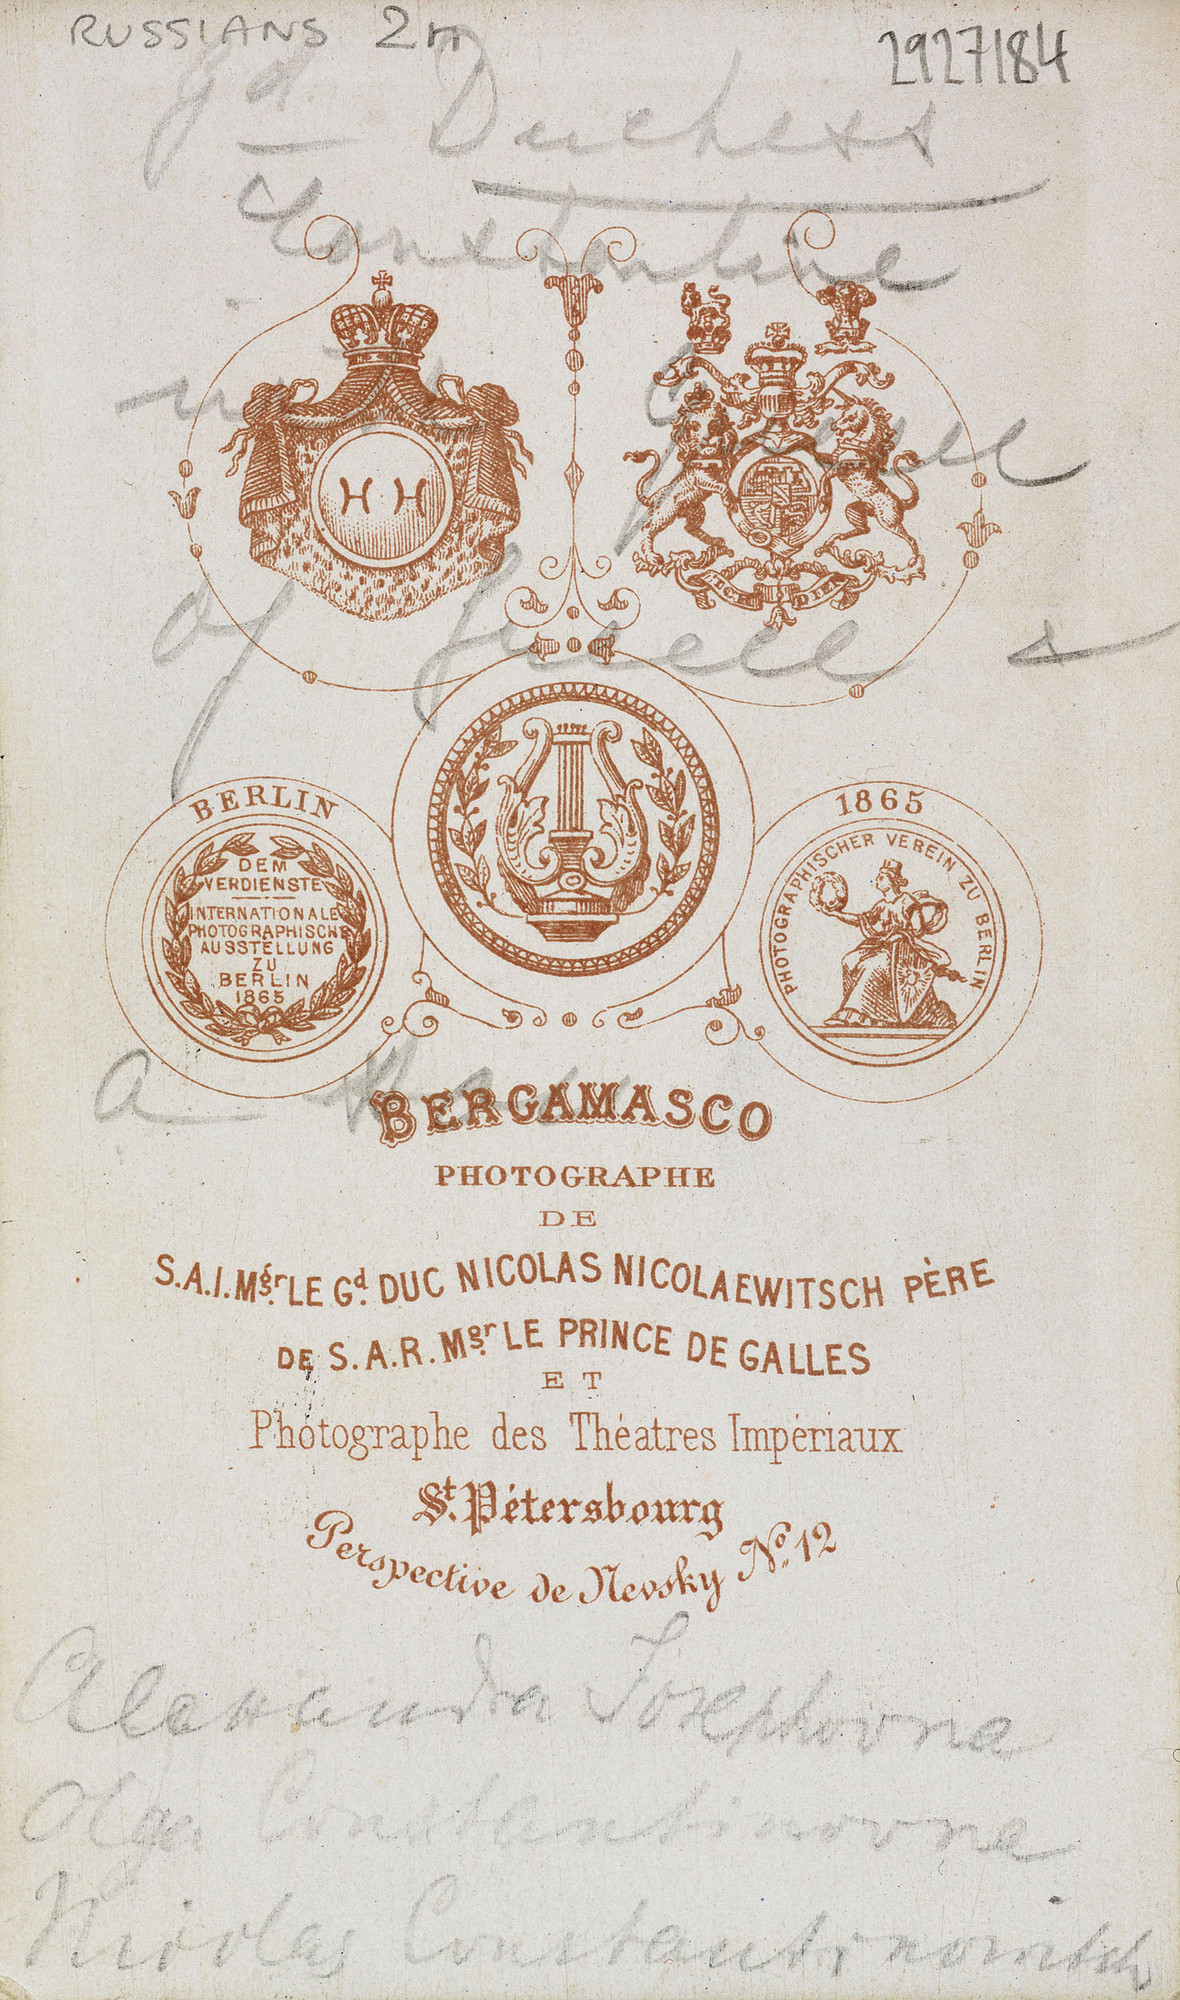 RUSSIANS 2
2927184
Gd. Duchess
Constantine
with Queen
of Greece &
H H
ICH DIEN
BERLIN
DEM
VERDIENSTE
INTERNATIONALE
PHOTOGRAPHISCHE
AUSSTELLUNG
ZU
BERLIN
1865
1865
PHOTOGRAPHISCHER VEREIN ZU BERLIN
a
BERGAMASCO
PHOTOGRAPHE
DE
S.A.I. Mgr. LE Gd. DUC NICOLAS NICOLAEWITSCH PÈRE
DE S.A.R. Mgr. LE PRINCE DE GALLES
ET
Photographe des Théatres Impériaux
St. Pétersbourg
Perspective de Nevsky No. 12
Alexandra Josephovna
Olga Constantinovna
Nicolas Constantinovitsch